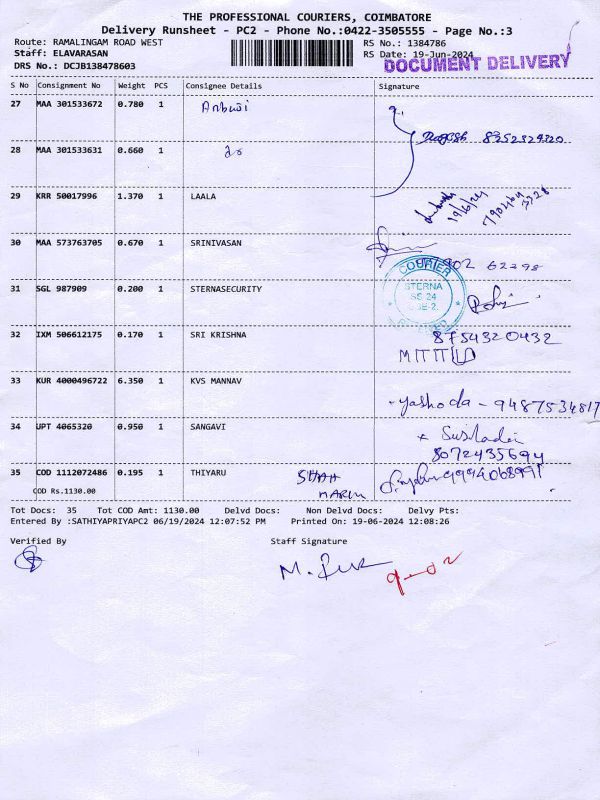 THE PROFESSIONAL COURIERS, COIMBATORE
Delivery Runsheet - PC2 - Phone No.:0422-3505555 - Page No.:3
Route: RAMALINGAM ROAD WEST RS No.: 1384786
Staff: ELAVARASAN RS Date: 19-Jun-2024
DRS No.: DCJB138478603 DOCUMENT DELIVERY
S No Consignment No Weight PCS Consignee Details Signature
27 MAA 301533672 0.780 1
28 MAA 301533631 0.660 1
29 KRR 50017996 1.370 1 LAALA
19/6/24
30 MAA 573763705 0.670 1 SRINIVASAN
COURIER
31 SGL 987909 0.200 1 STERNASECURITY
STERNA
32 IXM 506612175 0.170 1 SRI KRISHNA 8754320432
33 KUR 4000496722 6.350 1 KVS MANNAV
yashoda - 9487534817
34 UPT 4065320 0.950 1 SANGAVI
8072435694
35 COD 1112072486 0.195 1 THIYARU 9994068991
COD Rs.1130.00
Tot Docs: 35 Tot COD Amt: 1130.00 Delvd Docs: Non Delvd Docs: Delvy Pts:
Entered By :SATHIYAPRIYAPC2 06/19/2024 12:07:52 PM Printed On: 19-06-2024 12:08:26
Verified By Staff Signature